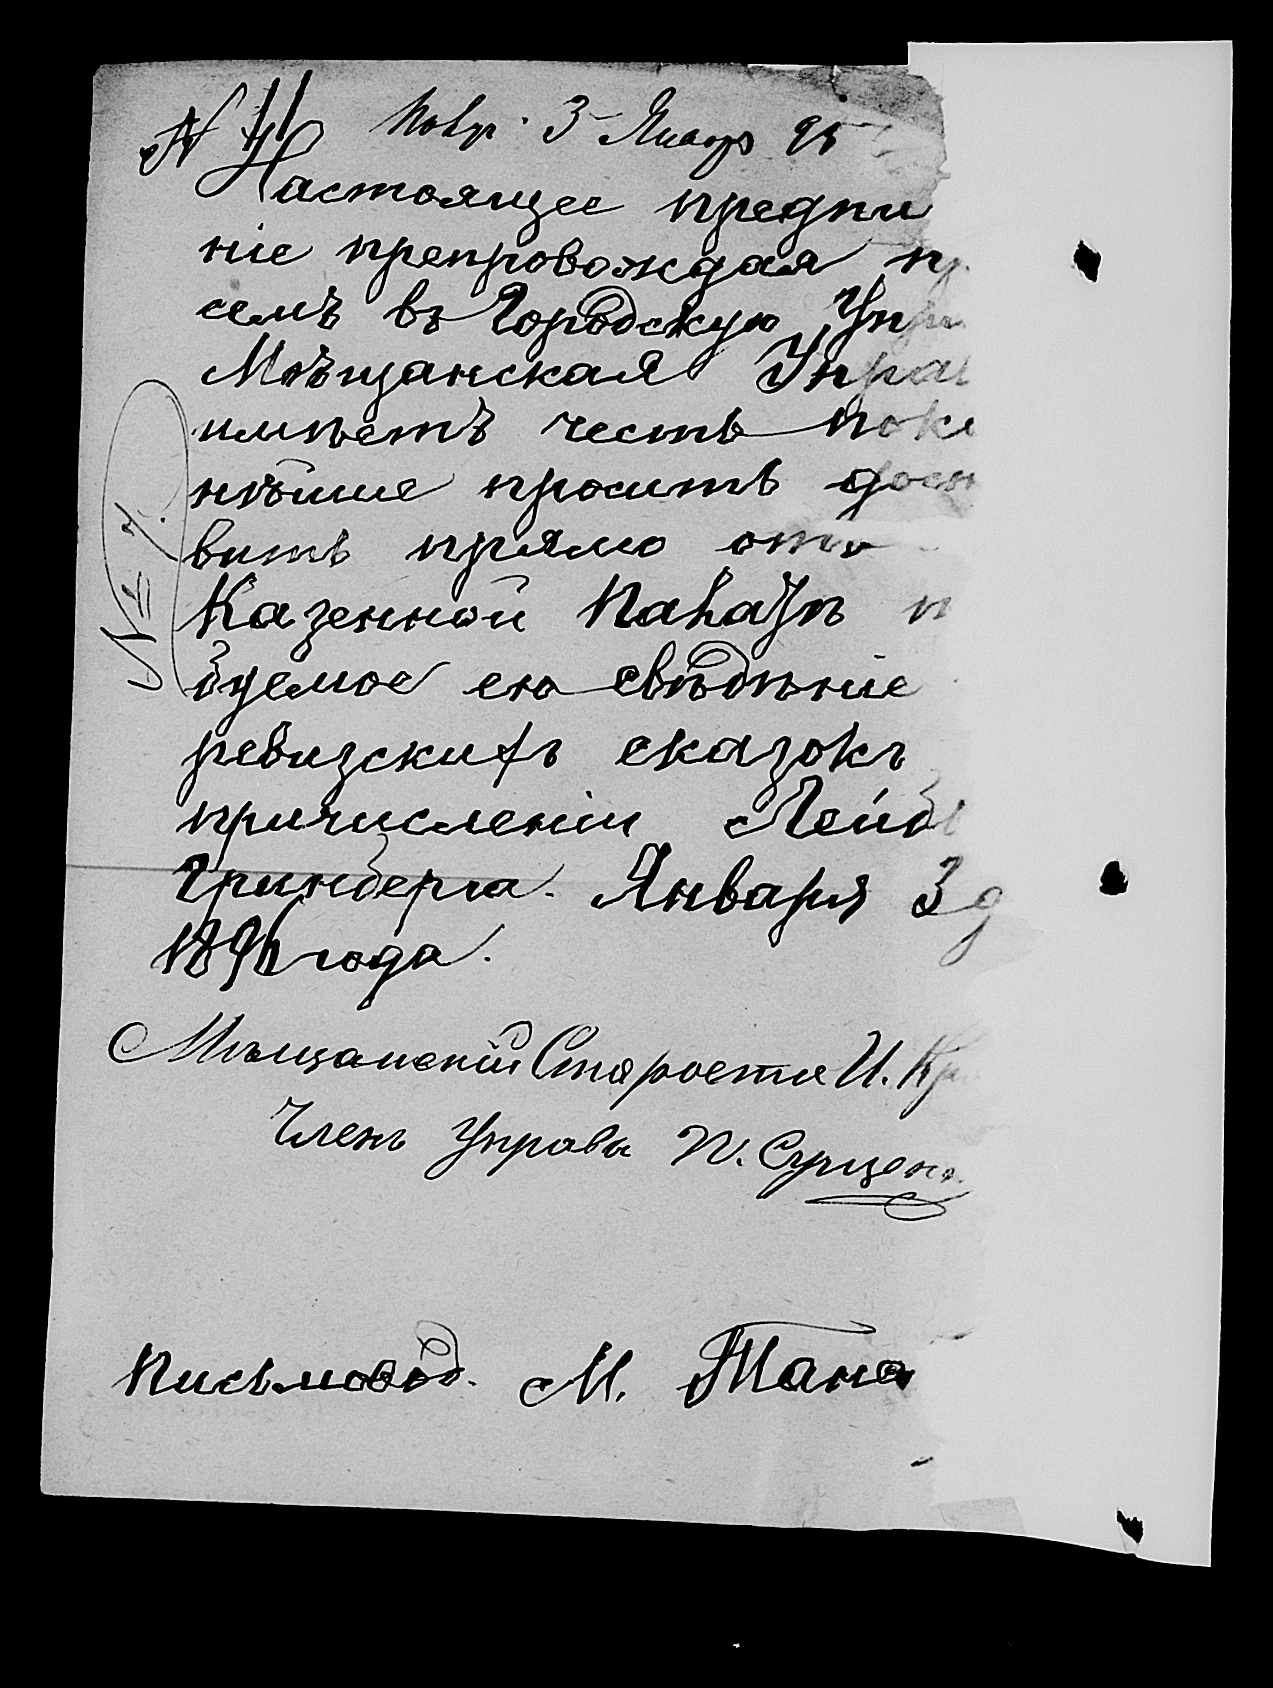 № 41 Повр. 3 Январ 95
Настоящее предпи
ніе препровождая пр
семъ въ Городскую Упр
Мѣщанская Управ
имѣетъ честь поко
нѣйше проситъ дост
вить прямо отъ
Казенной Палаты
буемое ею свѣдѣніе
ревизскихъ сказокъ
причисленіи Лейб
Гринберга. Января 3 д
1896 года.
Мѣщанскій Староста И. Кр
Членъ Управы П. Сущен
Письмовод. М. Тана
№ 7.